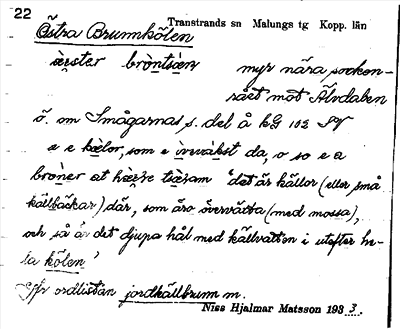 22
Transtrands sn Malungs tg Kopp. län
Östra Brunnkölen
èster bròntsien myr nära socken-
rået mot Älvdalen
ö. om Smågarnas s. del å kG 102 SV
e e kèlor, som e ìrevàkst da, o so e a
bròner at tsèram "det är källor (eller små
källbäckar) där, som äro övervätta (med mossa),
och så är det djupa hål med källvatten i utefter he-
la kölen"
Jfr ordlistan jordkällbrunn m.
Niss Hjalmar Matsson 1933.